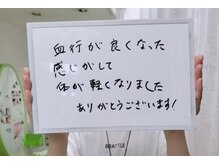 血行が良くなった
感じがして
体が軽くなりました
ありがとうございます!